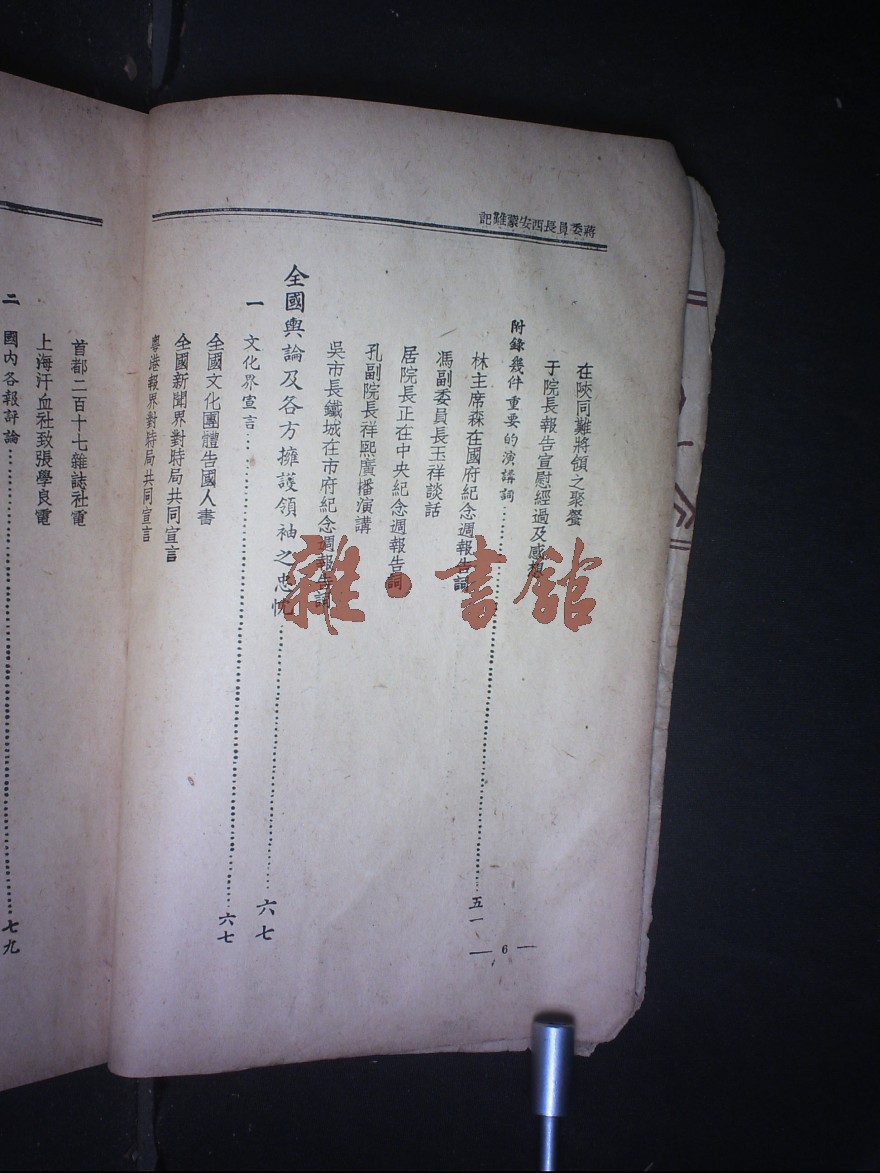 蔣委員長西安蒙難記
在陝同難將領之聚餐
于院長報告宣慰經過及感想
附錄幾件重要的演講詞……五一
林主席森在國府紀念週報告詞
馮副委員長玉祥談話
居院長正在中央紀念週報告詞
孔副院長祥熙廣播演講
吳市長鐵城在市府紀念週報告詞
全國輿論及各方擁護領袖之忠忱……六七
一 文化界宣言……六七
全國文化團體告國人書
全國新聞界對時局共同宣言
粵港報界對時局共同宣言
— 6 —
首都二百十七雜誌社電
上海汗血社致張學良電
二 國內各報評論……七九
雜·書館